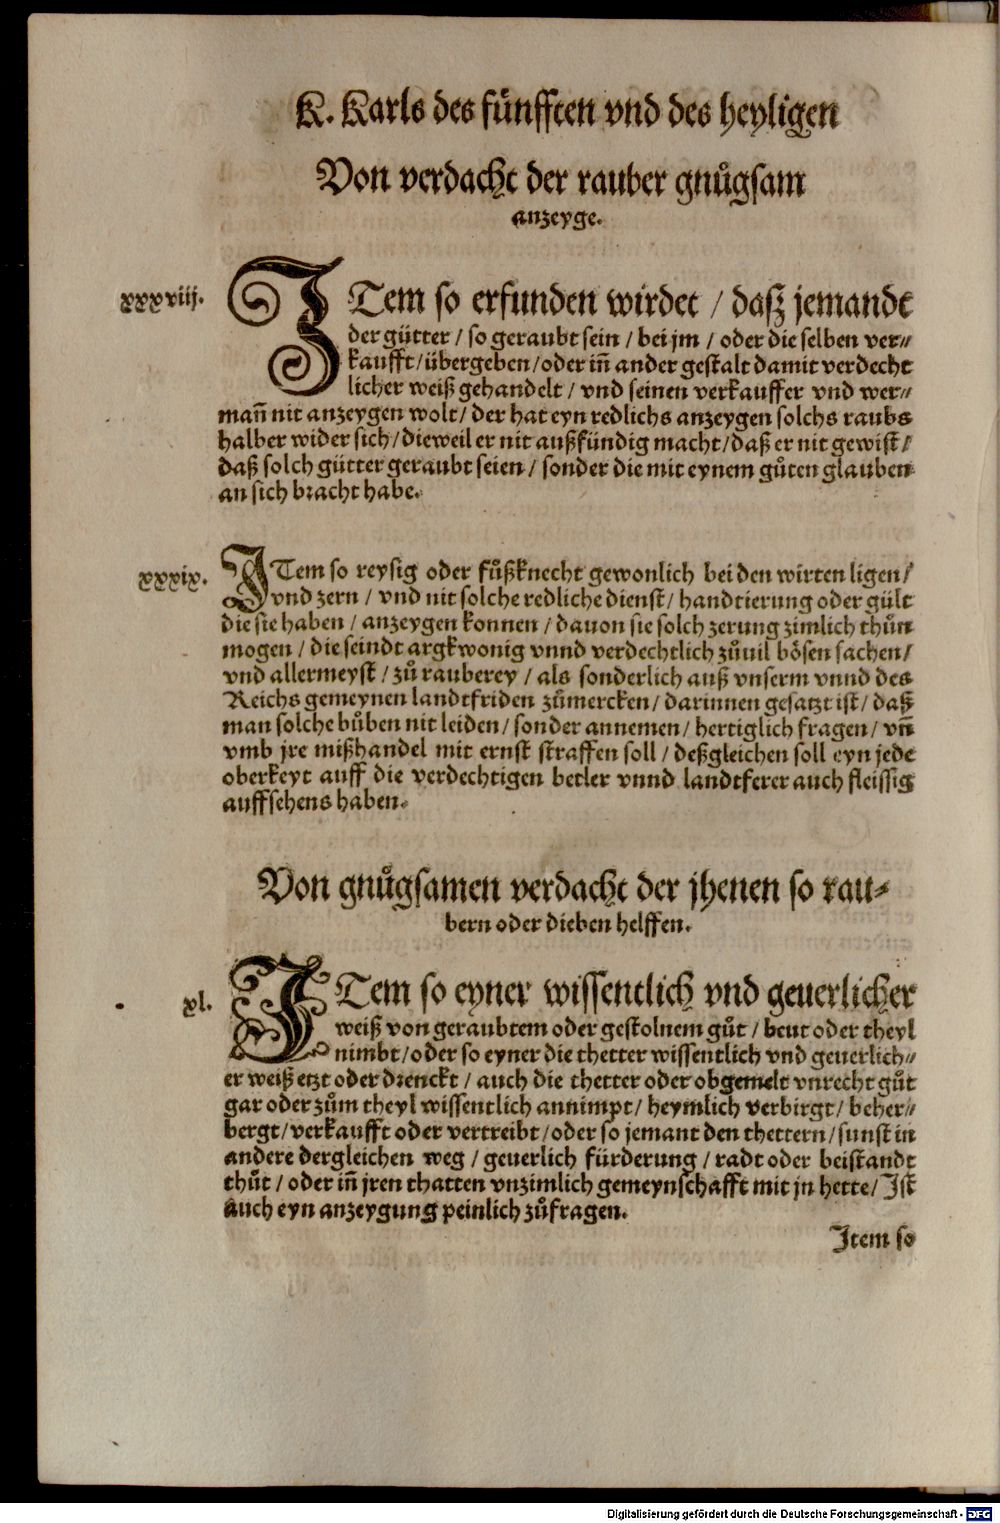 K. Karls des fünfften vnd des heyligen
Von verdacht der rauber gnůgsam
anzeyge.
xxxviij.
ITem so erfunden wirdet / daß jemandt
der gütter / so geraubt sein / bei jm / oder die selben ver⸗
kaufft / übergeben / oder inn̄ ander gestalt damit verdecht
licher weiß gehandelt / vnd seinen verkauffer vnd wer⸗
man̄ nit anzeygen wolt / der hat eyn redlichs anzeygen solchs raubs
halber wider sich / dieweil er nit außfündig macht / daß er nit gewist /
daß solch gütter geraubt seien / sonder die mit eynem gůten glauben
an sich bracht habe.
xxxix.
ITem so reysig oder fůßknecht gewonlich bei den wirten ligen /
vnd zern / vnd nit solche redliche dienst / handtierung oder gült
die sie haben / anzeygen konnen / dauon sie solch zerung zimlich thůn
mogen / die seindt argkwonig vnnd verdechtlich zůuil bösen sachen /
vnd allermeyst / zů rauberey / als sonderlich auß vnserm vnnd des
Reichs gemeynen landtfriden zůmercken / darinnen gesatzt ist / daß
man solche bůben nit leiden / sonder annemen / hertiglich fragen / vn̄
vmb jre mißhandel mit ernst straffen soll / deßgleichen soll eyn jede
oberkeyt auff die verdechtigen betler vnnd landtferer auch fleissig
auffsehens haben.
Von gnůgsamen verdacht der jhenen so rau⸗
bern oder dieben helffen.
xl.
ITem so eyner wissentlich vnd geuerlicher
weiß von geraubtem oder gestolnem gůt / beut oder theyl
nimbt / oder so eyner die thetter wissentlich vnd geuerlich⸗
er weiß etzt oder drenckt / auch die thetter oder obgemelt vnrecht gůt
gar oder zům theyl wissentlich annimpt / heymlich verbirgt / beher⸗
bergt / verkaufft oder vertreibt / oder so jemant den thettern / sunst in
andere dergleichen weg / geuerlich fürderung / radt oder beistandt
thůt / oder in̄ jren thatten vnzimlich gemeynschafft mit jn hette / Ist
auch eyn anzeygung peinlich zůfragen.
Item so
Digitalisierung gefördert durch die Deutsche Forschungsgemeinschaft - DFG